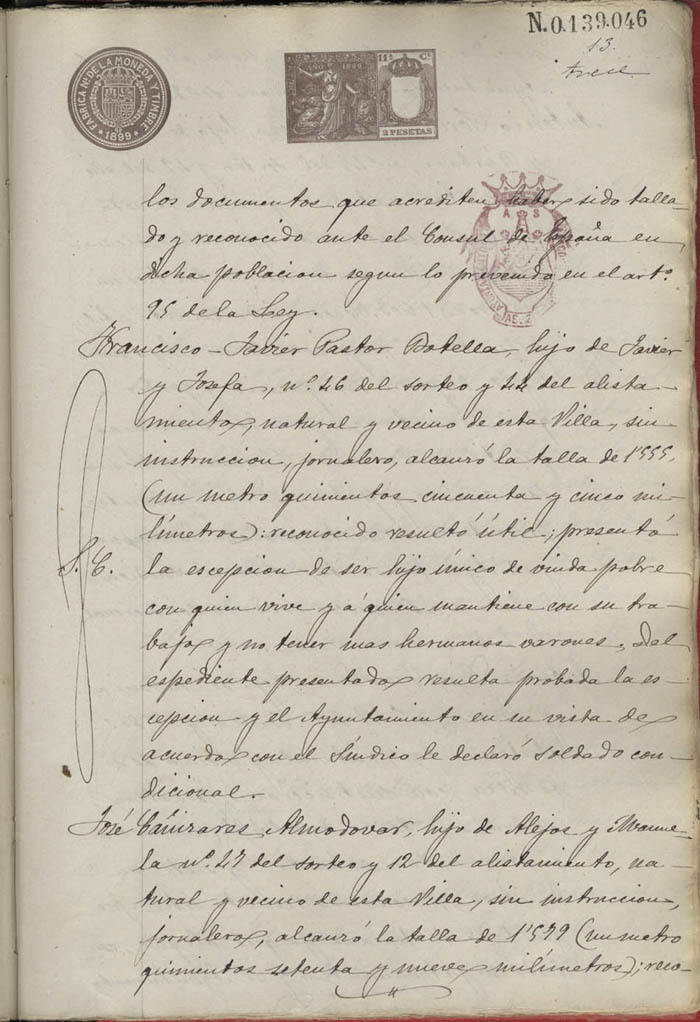 N.0.139.046
13.
trece
FABRICA Nal. DE LA MONEDA Y TIMBRE
1889
AÑO 1889
11ª Cª
2 PESETAS
A S
los documentos que acrediten haber sido talla-
do y reconocido ante el Consul de España en
dicha poblacion segun lo prevenido en el artº.
95 de la Ley.
Francisco-Javier Pastor Botella, hijo de Javier
y Josefa, nº. 46 del sorteo y 44 del alista-
miento, natural y vecino de esta Villa, sin
instruccion, jornalero, alcanzó la talla de 1'555,
(un metro quinientos cincuenta y cinco mi-
límetros): reconocido resultó útil; presentó
S. C.
la escepcion de ser hijo único de viuda pobre
con quien vive y á quien mantiene con su tra-
bajo y no tener mas hermanos varones. Del
espediente presentado resulta probada la es-
cepcion y el Ayuntamiento en su vista de
acuerdo con el Síndico le declaró soldado con-
dicional.
José Cañizares Almodovar, hijo de Alejos y Manue-
la nº. 47 del sorteo y 12 del alistamiento, na-
tural y vecino de esta Villa, sin instruccion,
jornalero, alcanzó la talla de 1'579 (un metro
quinientos setenta y nueve milímetros); reco-